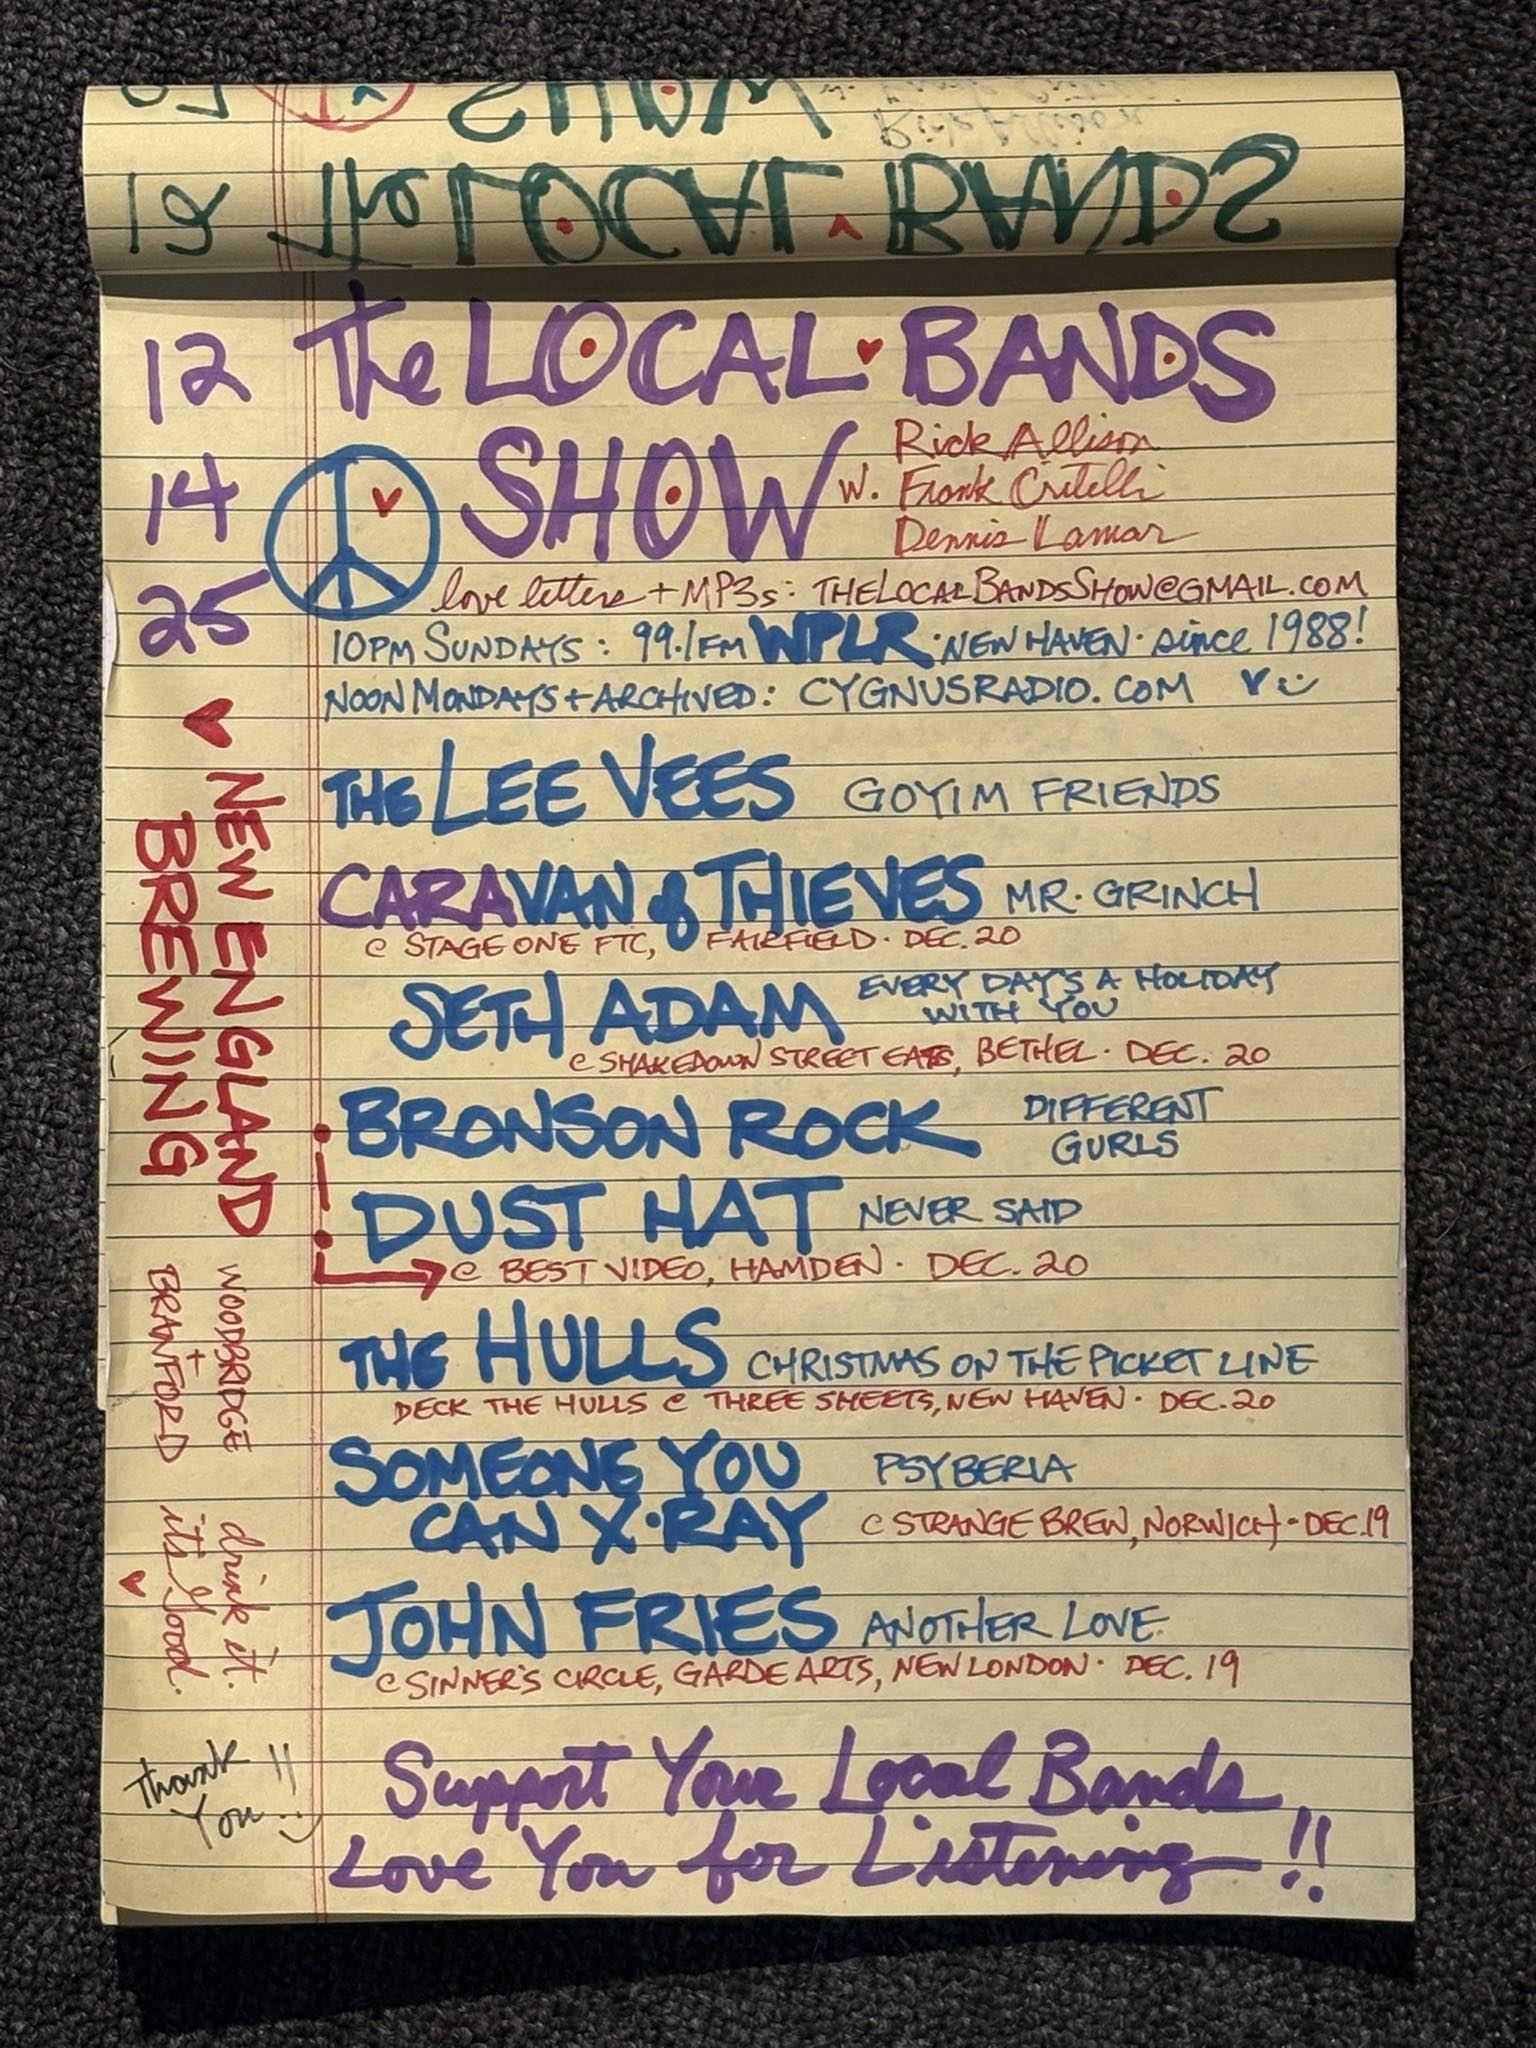 12 The LOCAL BANDS
SHOW
12 The LOCAL BANDS
14 SHOW w. Rick Allison
Frank Critelli
Dennis Lamar
25
love letters + MP3s: THELOCALBANDSSHOW@GMAIL.COM
10PM SUNDAYS: 99.1FM WPLR · NEW HAVEN · since 1988!
NOON MONDAYS + ARCHIVED: CYGNUSRADIO.COM
THE LEE VEES GOYIM FRIENDS
CARAVAN of THIEVES MR. GRINCH
@ STAGE ONE FTC, FAIRFIELD · DEC. 20
SETH ADAM EVERY DAY'S A HOLIDAY
WITH YOU
@ SHAKEDOWN STREET EATS, BETHEL · DEC. 20
BRONSON ROCK DIFFERENT
GURLS
DUST HAT NEVER SAID
@ BEST VIDEO, HAMDEN · DEC. 20
THE HULLS CHRISTMAS ON THE PICKET LINE
DECK THE HULLS @ THREE SHEETS, NEW HAVEN · DEC. 20
SOMEONE YOU PSYBERIA
CAN X·RAY @ STRANGE BREW, NORWICH · DEC. 19
JOHN FRIES ANOTHER LOVE
@ SINNER'S CIRCLE, GARDE ARTS, NEW LONDON · DEC. 19
Support Your Local Bands
Love You for Listening!!
NEW ENGLAND
BREWING
WOODBRIDGE
+
BRANFORD
drink it.
it's Good.
Thank
You!!